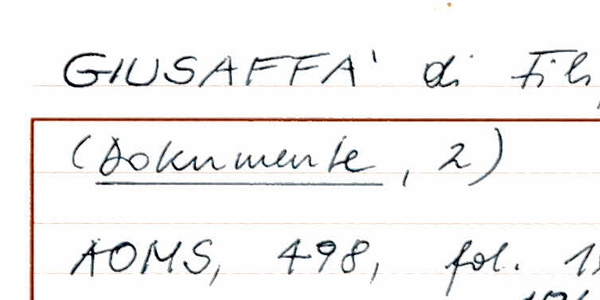 GIUSAFFA' di
(Dokumente, 2)
AOMS, 498, fol.